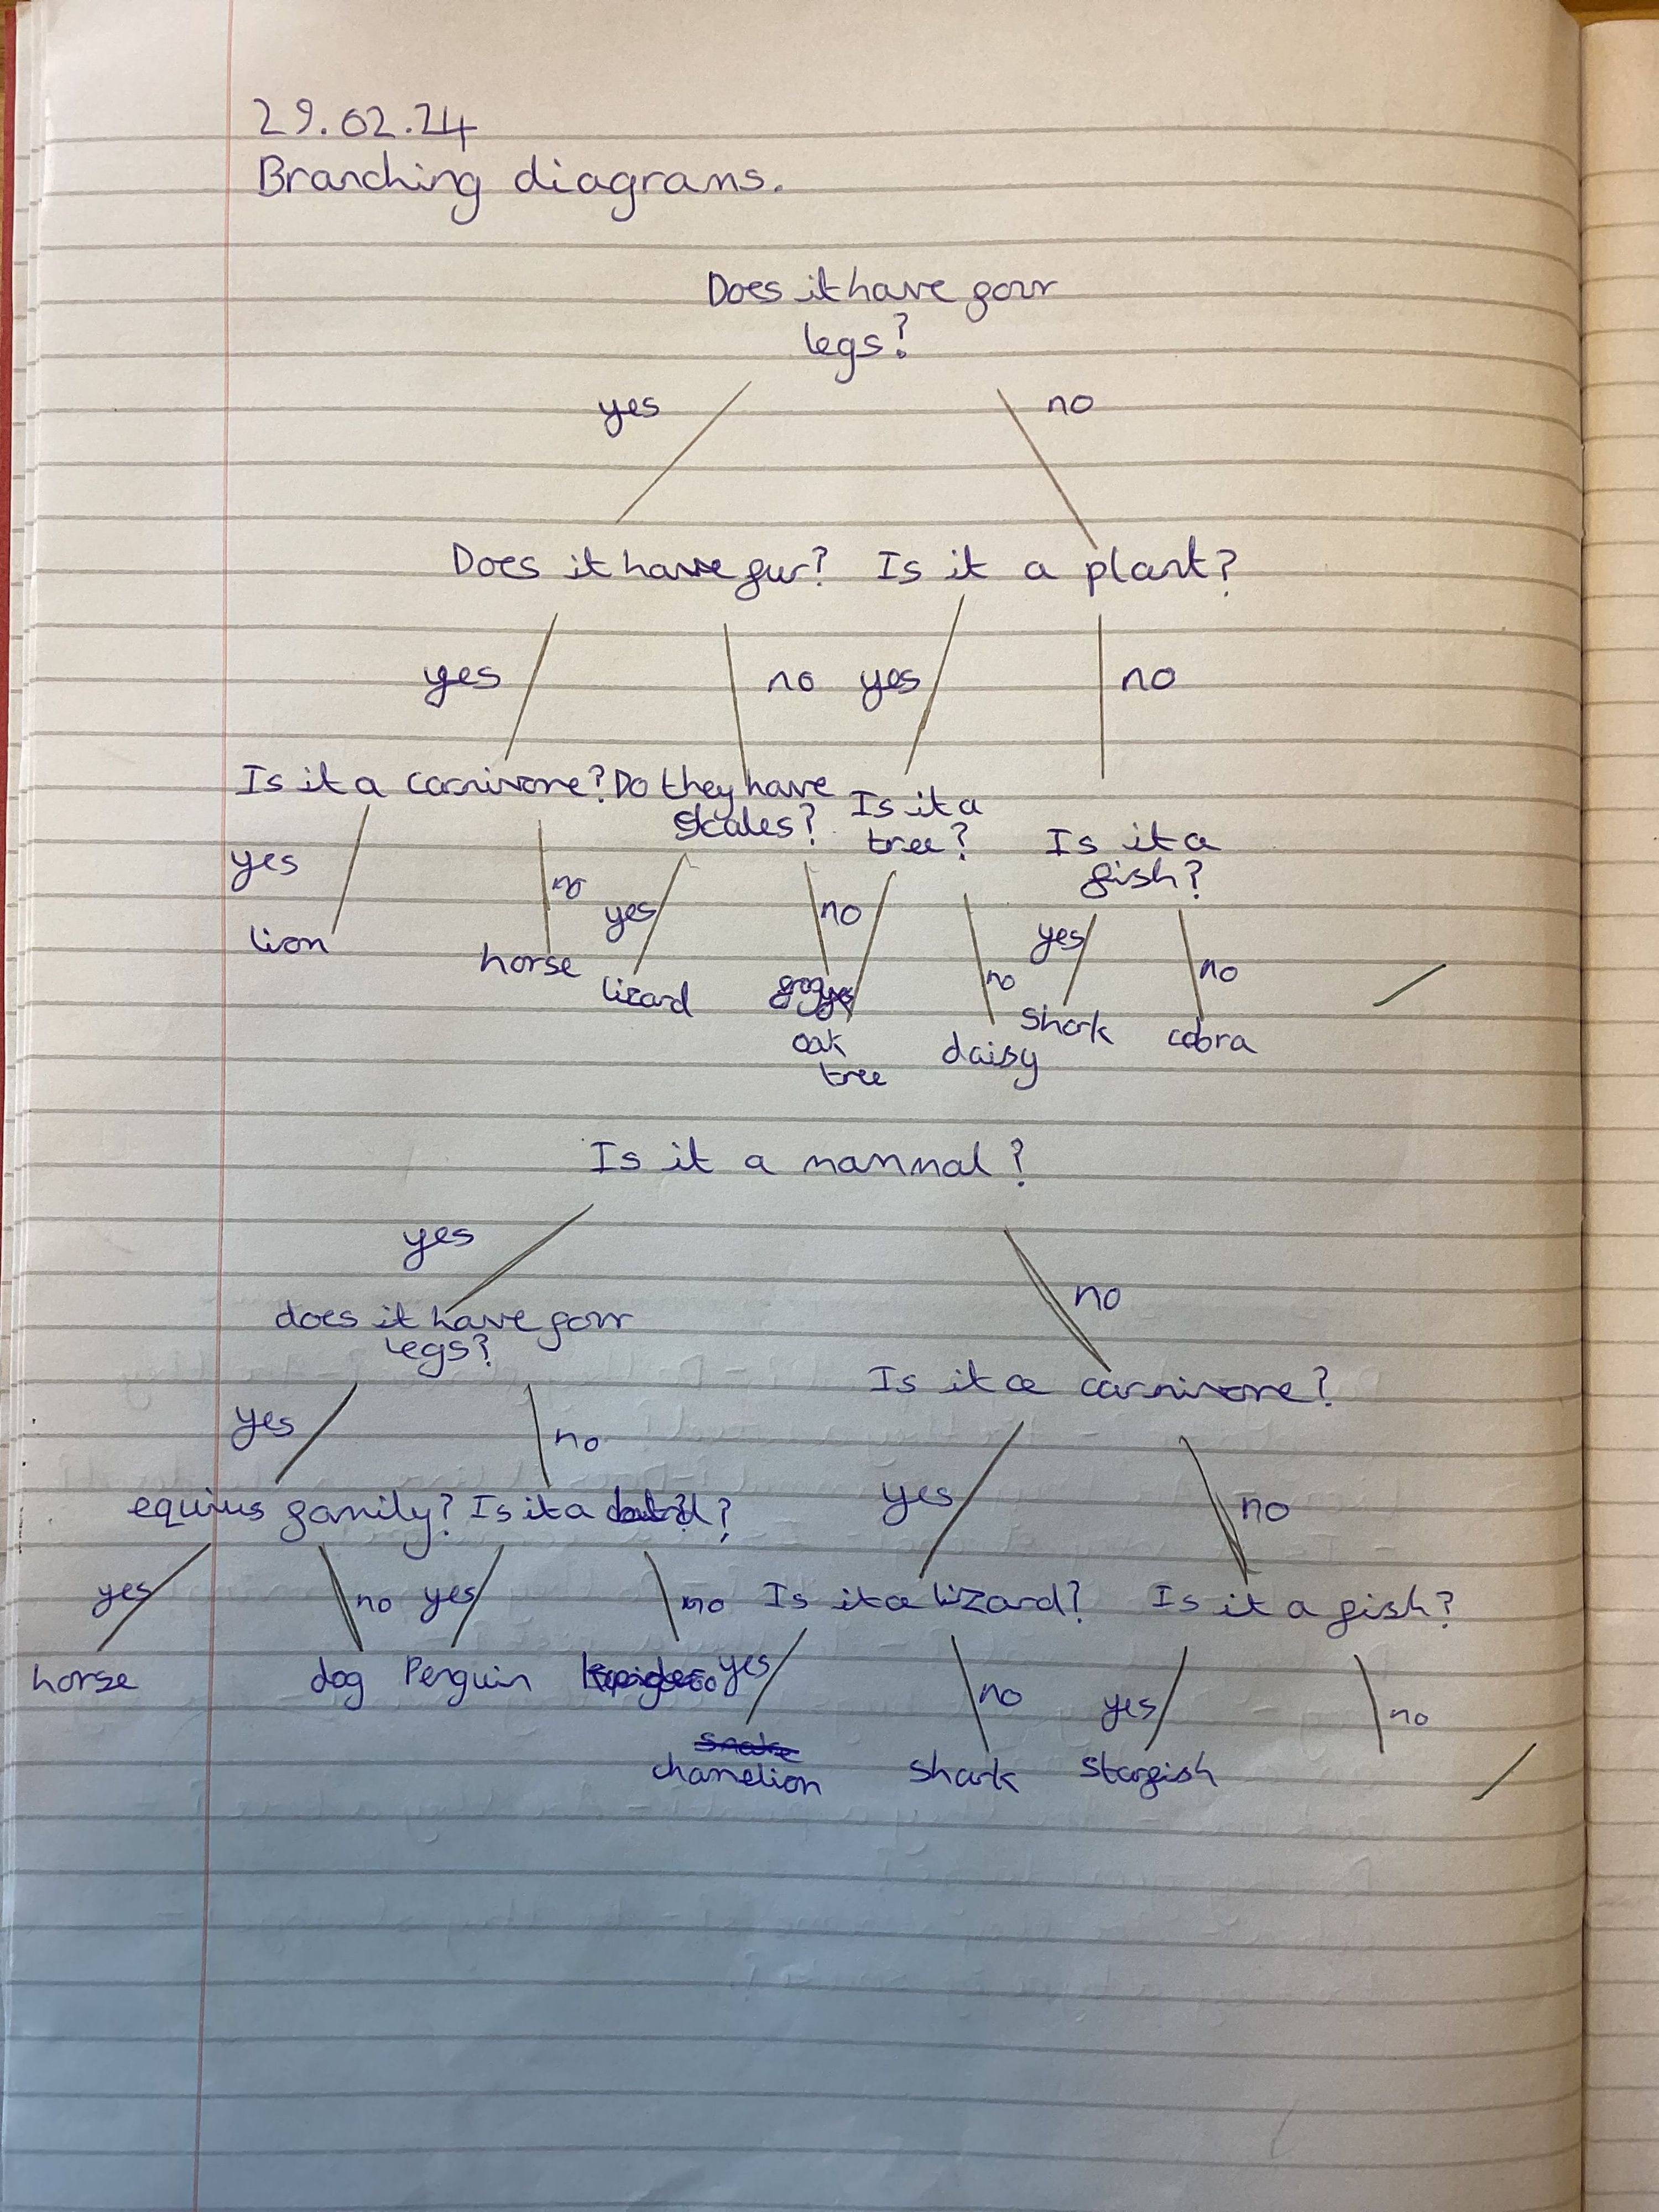 29.02.24
Branching diagrams.
Does it have four
legs?
yes no
Does it have fur? Is it a plant?
yes no yes no
Is it a carnivore? Do they have Is it a
scales? tree? Is it a
fish?
yes no yes no yes
lion horse lizard yes no no
oak daisy shark cobra
tree
Is it a mammal?
yes
no
does it have four
legs?
Is it a carnivore?
yes no
yes no
equius family? Is it a ?
yes no yes no Is it a lizard? Is it a fish?
horse dog Penguin yes no yes no
snake
chamelion shark starfish